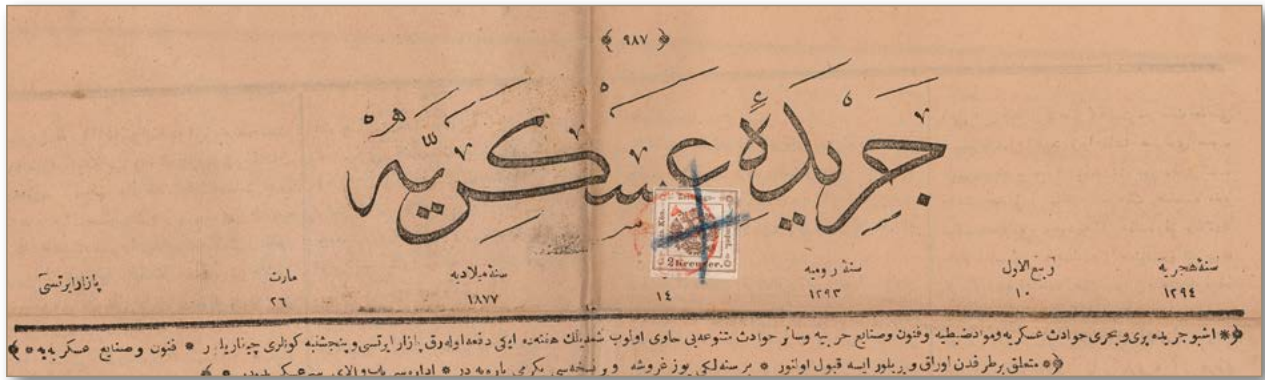 ﴿ ٩٨٧ ﴾
جريدهٔ عسكريّه
سنهٔ هجريه ربيع الاول سنهٔ روميه سنهٔ ميلاديه مارت پازار ايرتسى
١٢٩٤ ١٠ ١٢٩٣ ١٤ ١٨٧٧ ٢٦
2 Kreuzer.
﴿* اشبو جريده برى و بحرى حوادث عسكريه و مواد ضبطيه و فنون و صنايع حربيه وسائر حوادث متنوعه يى حاوى اولوب شمديلك هفته ده ايكى دفعه اوله رق پازار ايرتسى و پنجشنبه كونلرى چيقاريلور * فنون و صنايع عسكريه يه * ﴾
﴿* متعلق بر طرفدن اوراق ويريلور ايسه قبول اولنور * بر سنه لكى يوز غروشه و بر نسخه سى يكرمى پاره يه در * اداره سى باب والاى سر عسكريده در * ﴾